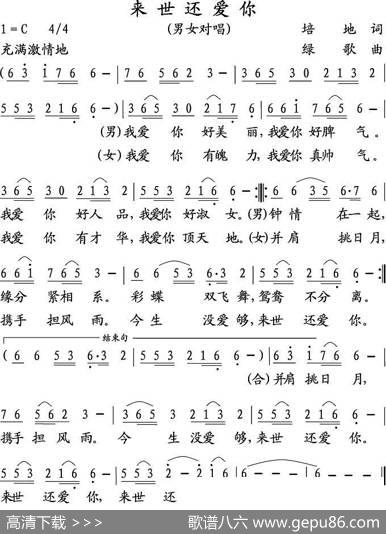 来世还爱你
1=C 4/4 (男女对唱) 培地词
充满激情地 绿歌曲
(6 3 i 7 6 6 - | 7 6 5 3 2 3 - | 5 5 3 2 1 6
5 5 3 2 1 6 6 - ) | 3 6 5 3 0 | 2 1 3 2 | 5 5 3 2 1 2 6 - |
(男)我爱 你 好美 丽,我爱你 好脾 气。
(女)我爱 你 有魄 力,我爱你 真帅 气。
3 6 5 3 0 2 1 3 2 | 5 5 3 2 1 6 6 - :‖: 6 6 3 5 6·7 6 |
我爱 你 好人 品,我爱你 好淑 女。(男)钟 情 在一 起,
我爱 你 有才 华,我爱你 顶天 地。(女)并 肩 挑日 月,
6 6 i 7 6 5 3 - | 6 5 5 3 6·3 2 | 5 5 3 2 1 6 6 - :‖
缘分 紧相 系。 彩蝶 双飞 舞,鸳鸯 不分 离。
携手 担风 雨。 今生 没爱 够,来世 还爱 你。
结束句
( 6 6 5 5 3 6·3 2 | 5 5 3 2 1 6 6 - ) | 6 3 i 7 6 6 - |
(合)并肩 挑日 月,
7 6 5 6 2 3 - | 3 6 5 3 2 1 3 2 | 5 5 3 2 1 6 6 - |
携手 担 风 雨。 今 生 没爱 够,来世 还爱 你。
5 5 3 2 1 6 6 - | 5 5 3 2 - 2 1 6 | 6 - - - | 6 - - - ‖
来世 还爱 你, 来世 还
高清下载 >>> 歌谱八六 www.gepu86.com